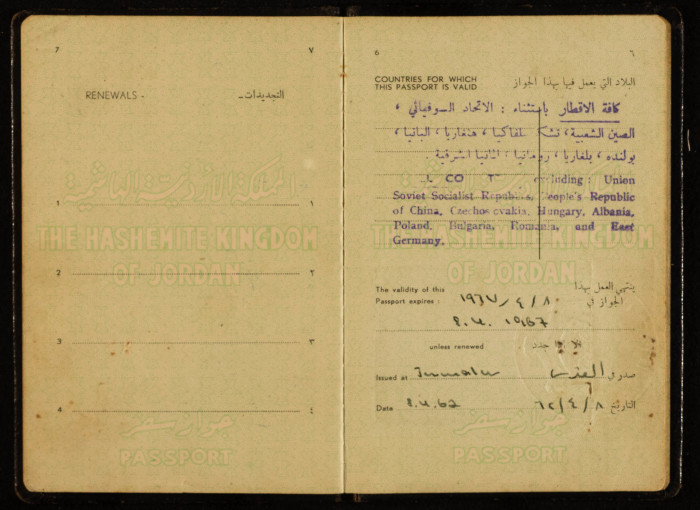 6
٦
COUNTRIES FOR WHICH
THIS PASSPORT IS VALID
البلاد التي يعمل فيها بهذا الجواز
كافة الاقطار باستثناء : الاتحاد السوفياتي ،
الصين الشعبية، تشكسلفاكيا ، هنغاريا ، البانيا ،
بولنده ، بلغاريا ، رومانيا ، المانيا الشرقية .
: Union
Soviet Socialist Republics, People's Republic
of China, Czechoslovakia, Hungary, Albania,
Poland, Bulgaria, Romania, and East
Germany.
المملكة الأردنية الهاشمية
THE HASHEMITE KINGDOM
OF JORDAN
The validity of this
Passport expires :
ينتهي العمل بهذا
الجواز في
١٩٦٧/٤/٨
8.4.1967
unless renewed
الا اذا جدد
Issued at
صدر في القدس
Date 8.4.62
التاريخ ٦٢/٤/٨
جواز سفر
PASSPORT
7
٧
RENEWALS -
التجديدات -
المملكة الأردنية الهاشمية
1
١
THE HASHEMITE KINGDOM
OF JORDAN
2
٢
3
٣
4
٤
جواز سفر
PASSPORT